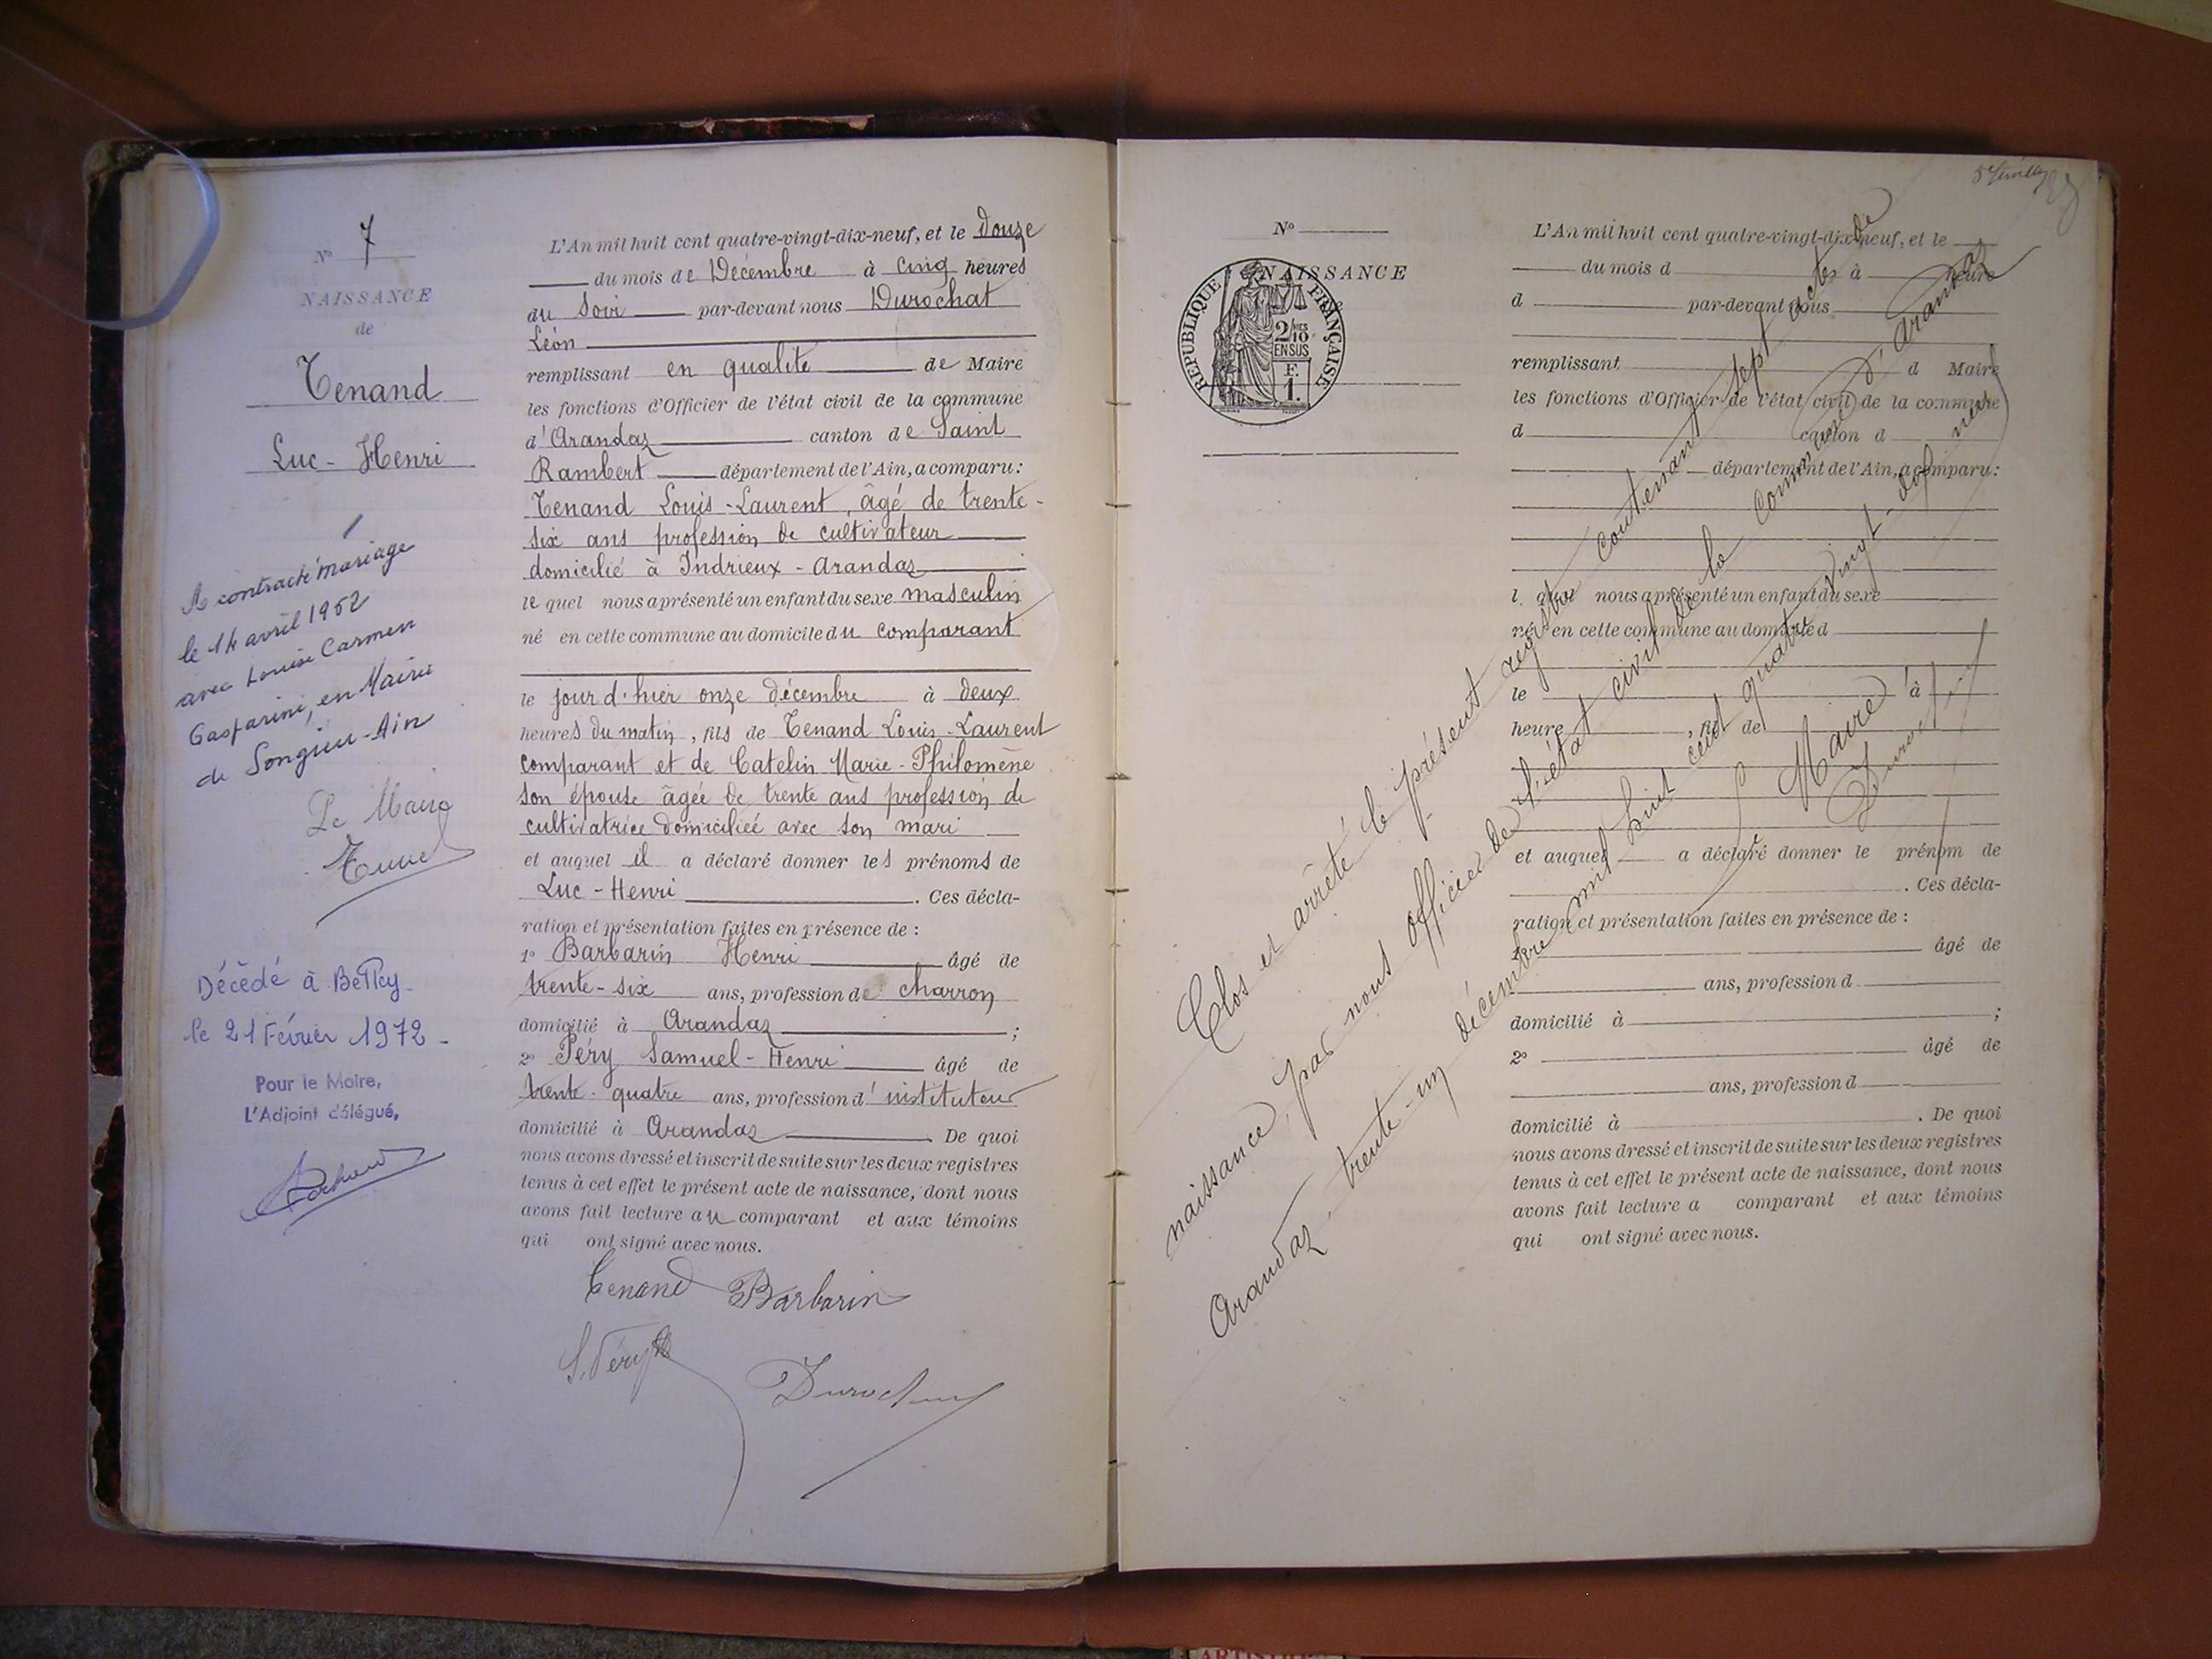 N° 7
NAISSANCE
de
Tenand
Luc-Henri
A contracté mariage
le 14 avril 1952
avec Louise Carmen
Gasparini, en Mairie
de Songieu-Ain
Le Maire
Décédé à Belley
le 21 Février 1972 -
Pour le Maire,
L'Adjoint délégué,
L'An mil huit cent quatre-vingt-dix-neuf, et le douze
du mois de Décembre à cinq heures
du soir par-devant nous Durochat
Léon
remplissant en qualité de Maire
les fonctions d'Officier de l'état civil de la commune
d'Arandaz canton de Saint
Rambert département de l'Ain, a comparu:
Tenand Louis-Laurent, âgé de trente-
six ans profession de cultivateur
domicilié à Indrieux - Arandaz
lequel nous a présenté un enfant du sexe masculin
né en cette commune au domicile du comparant
le jour d'hier onze décembre à deux
heures du matin, fils de Tenand Louis-Laurent
comparant et de Catelin Marie-Philomène
son épouse âgée de trente ans profession de
cultivatrice domiciliée avec son mari
et auquel il a déclaré donner les prénoms de
Luc-Henri. Ces décla-
ration et présentation faites en présence de :
1° Barbarin Henri âgé de
trente-six ans, profession de charron
domicilié à Arandaz ;
2° Péry Samuel-Henri âgé de
trente-quatre ans, profession d'instituteur
domicilié à Arandaz. De quoi
nous avons dressé et inscrit de suite sur les deux registres
tenus à cet effet le présent acte de naissance, dont nous
avons fait lecture au comparant et aux témoins
qui ont signé avec nous.
Tenand Barbarin
S. Péry
Durochat
N°
NAISSANCE
REPUBLIQUE FRANÇAISE
2/10
EN SUS
F.
1.
L'An mil huit cent quatre-vingt-dix-neuf, et le
du mois d à heure
d par-devant nous
remplissant d Maire
les fonctions d'Officier de l'état civil de la commune
d canton d
département de l'Ain, a comparu:
l quel nous a présenté un enfant du sexe
né en cette commune au domicile d
le à
heure , fil de
et auquel a déclaré donner le prénom de
. Ces décla-
ration et présentation faites en présence de :
1° âgé de
ans, profession d
domicilié à ;
2° âgé de
ans, profession d
domicilié à . De quoi
nous avons dressé et inscrit de suite sur les deux registres
tenus à cet effet le présent acte de naissance, dont nous
avons fait lecture a comparant et aux témoins
qui ont signé avec nous.
Clos et arrêté le présent registre contenant sept actes de
naissance, par nous officier de l'état civil de la commune d'Arandaz
Arandaz trente-un décembre mil huit cent quatre vingt-dix neuf
Maire
Durochat